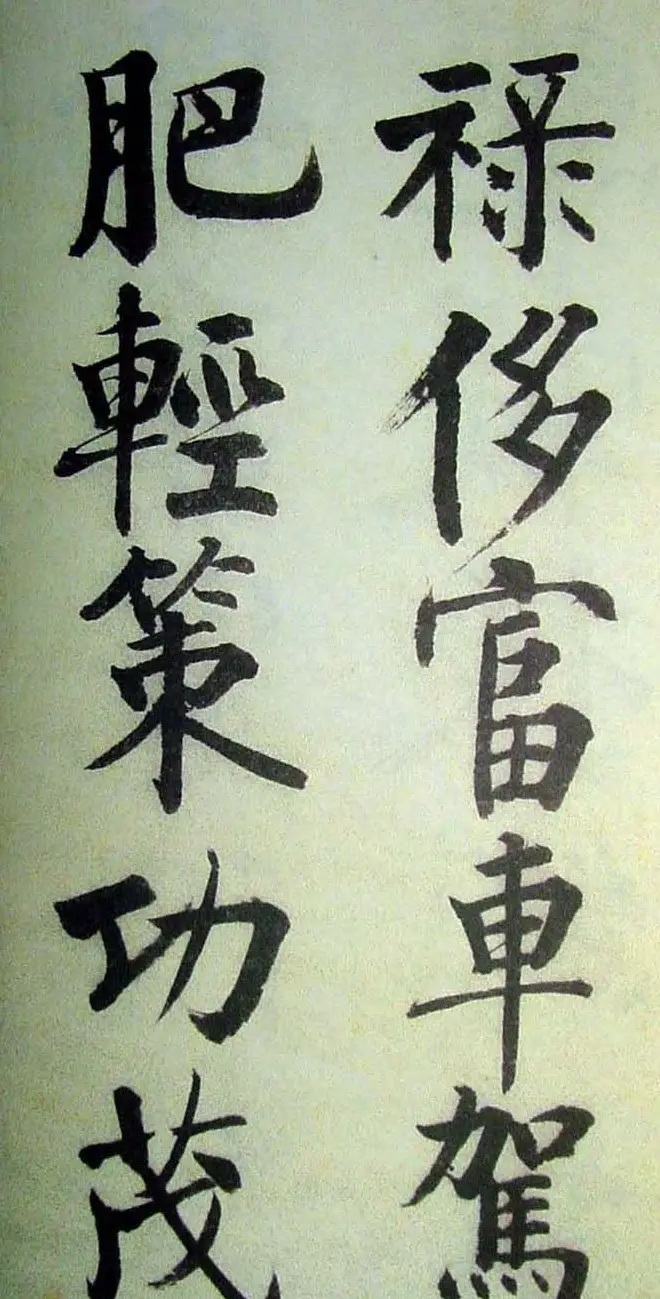 祿侈富車駕
肥輕策功茂